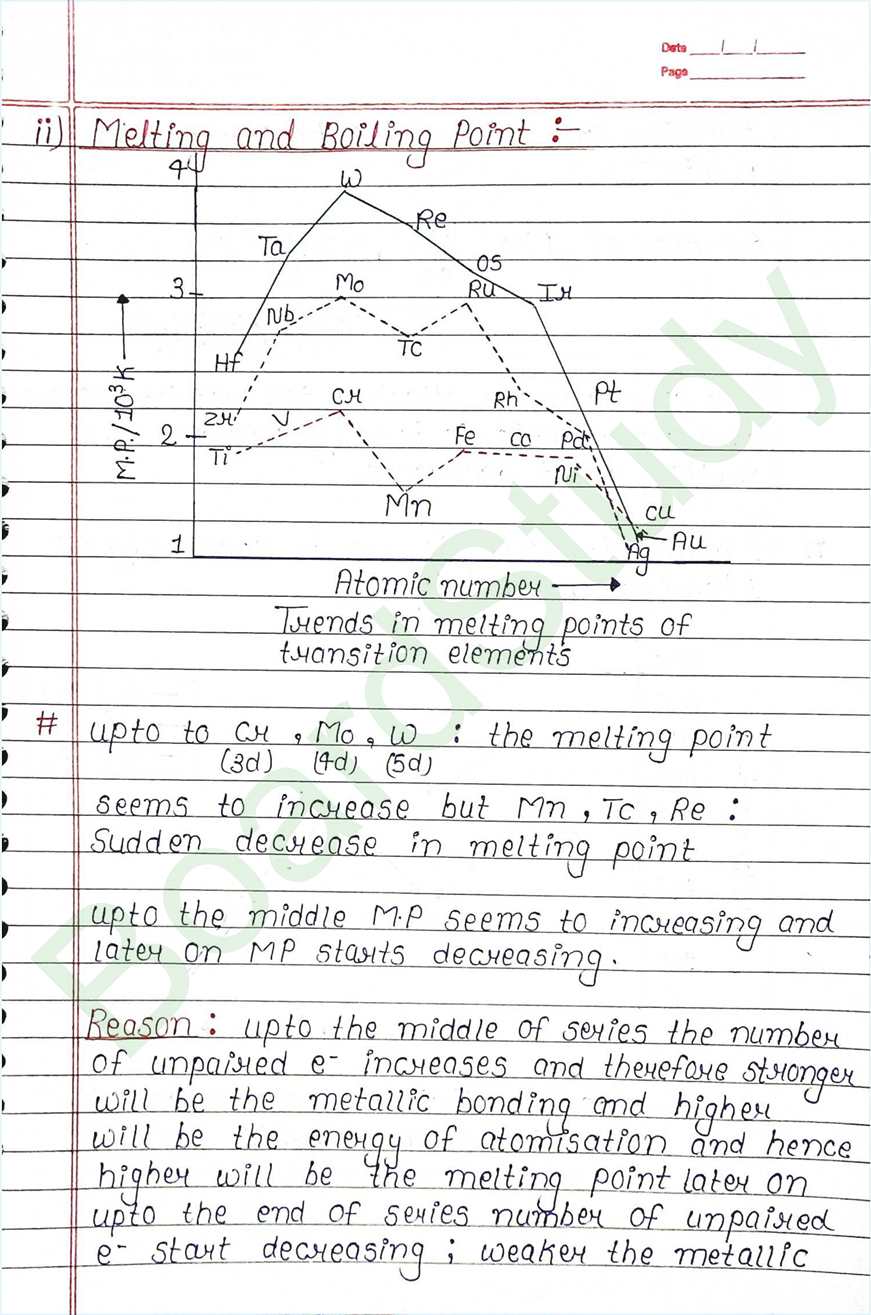 Date / /
Page
ii) Melting and Boiling Point :-
4
W
Re
Ta
Os
Mo
Ru
Ir
3
Nb
Tc
Hf
Cr
Rh
Pt
Zr
V
M.P./10³K
2
Fe
Co
Pd
Ti
Ni
Mn
Cu
Au
1
Ag
Atomic number
Trends in melting points of
transition elements
# upto to Cr , Mo , W : the melting point
(3d) (4d) (5d)
seems to increase but Mn , Tc , Re :
Sudden decrease in melting point
upto the middle M.P seems to increasing and
later on MP starts decreasing.
Reason : upto the middle of series the number
of unpaired e- increases and therefore stronger
will be the metallic bonding and higher
will be the energy of atomisation and hence
higher will be the melting point later on
upto the end of series number of unpaired
e- start decreasing ; weaker the metallic
BoardStudy